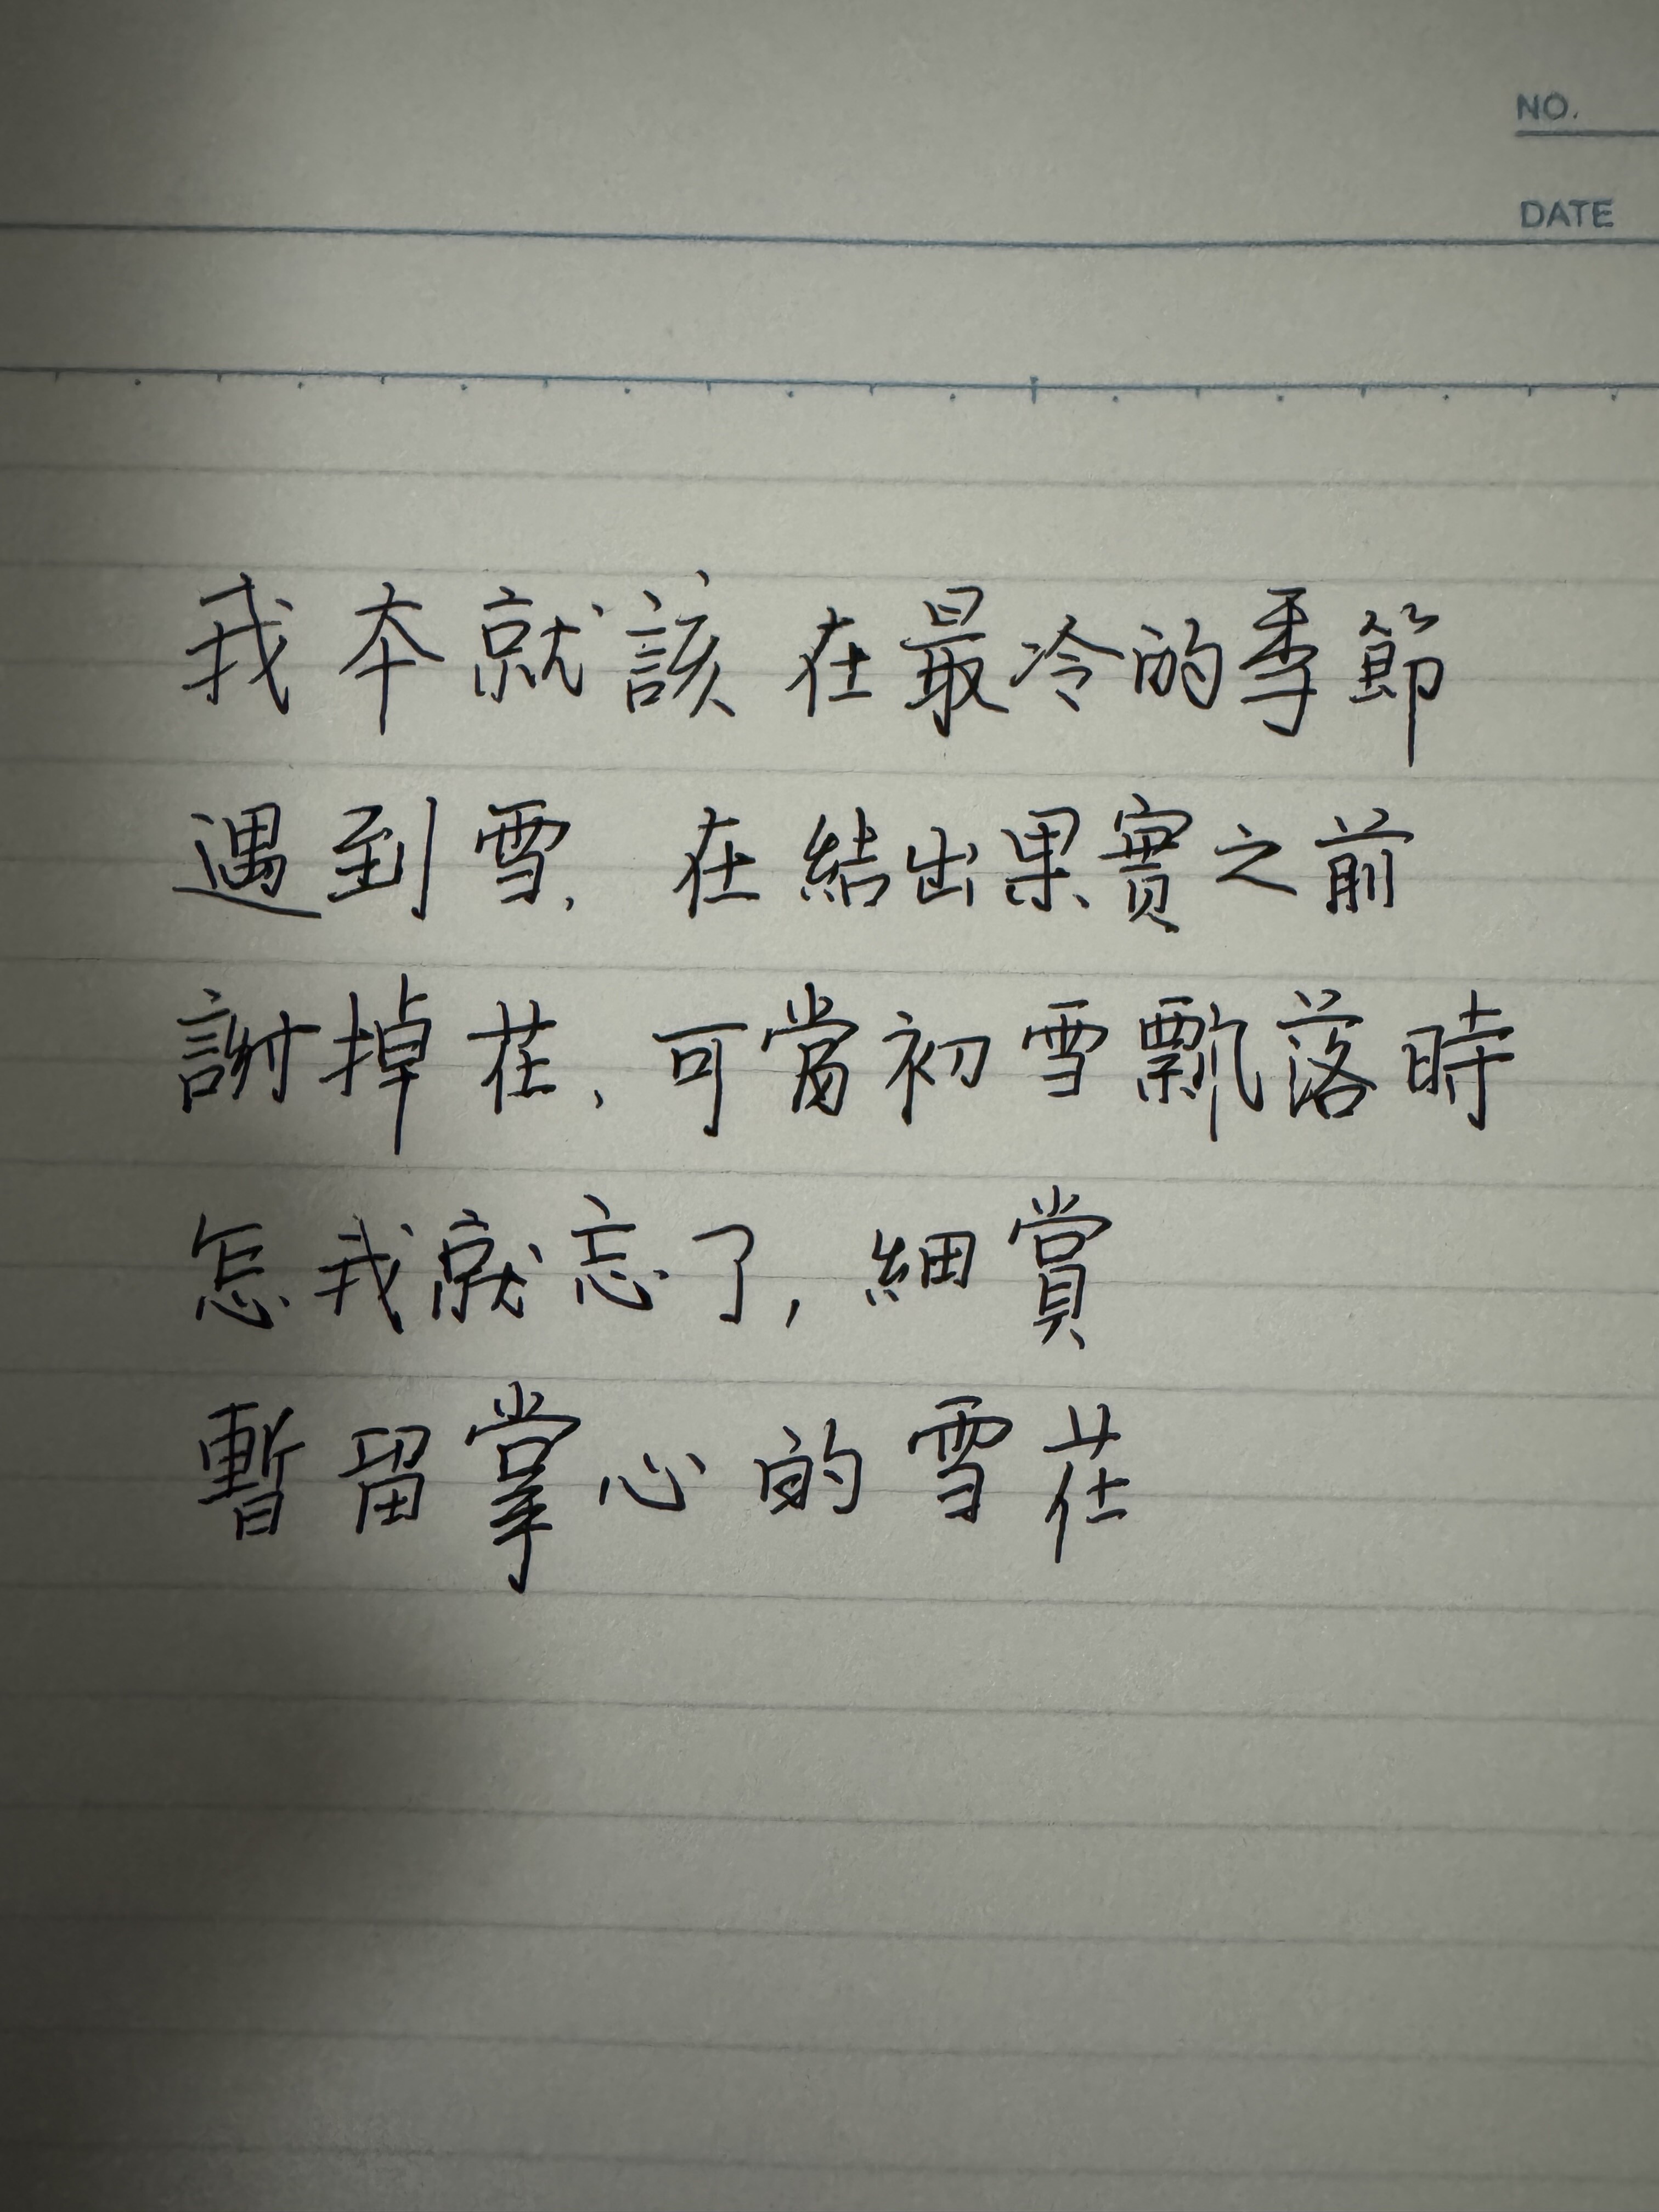 NO.
DATE
我本就該在最冷的季節
遇到雪.在結出果實之前
謝掉花.可當初雪飄落時
怎我就忘了,細賞
暫留掌心的雪花